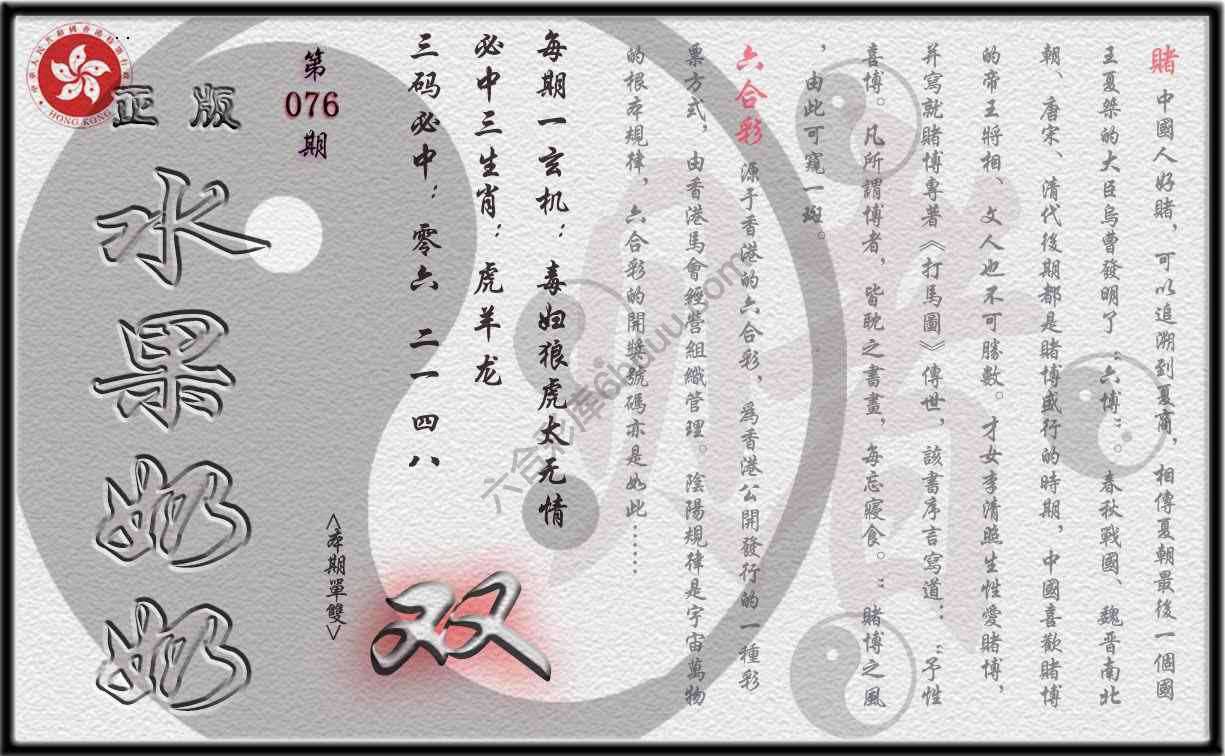 賭 中國人好賭，可以追溯到夏商，相傳夏朝最後一個國
王夏桀的大臣烏曹發明了“六博”。春秋戰國、魏晋南北
朝、唐宋、清代後期都是賭博盛行的時期，中國喜歡賭博
的帝王將相、文人也不可勝數。才女李清照生性愛賭博，
并寫就賭博專著《打馬圖》傳世，該書序言寫道：“予性
喜博。凡所謂博者，皆耽之書畫，每忘寢食。”賭博之風
，由此可窺一斑。
六合彩 源于香港的六合彩，爲香港公開發行的一種彩
票方式，由香港馬會經營組織管理。陰陽規律是宇宙萬物
的根本規律，六合彩的開獎號碼亦是如此……
每期一玄机：毒妇狼虎太无情
必中三生肖：虎羊龙
三码必中：零六 二一 四八
第
076
期
<本期單雙>
双
正版
水果奶奶
HONG KONG
六合彩库6hduu.com